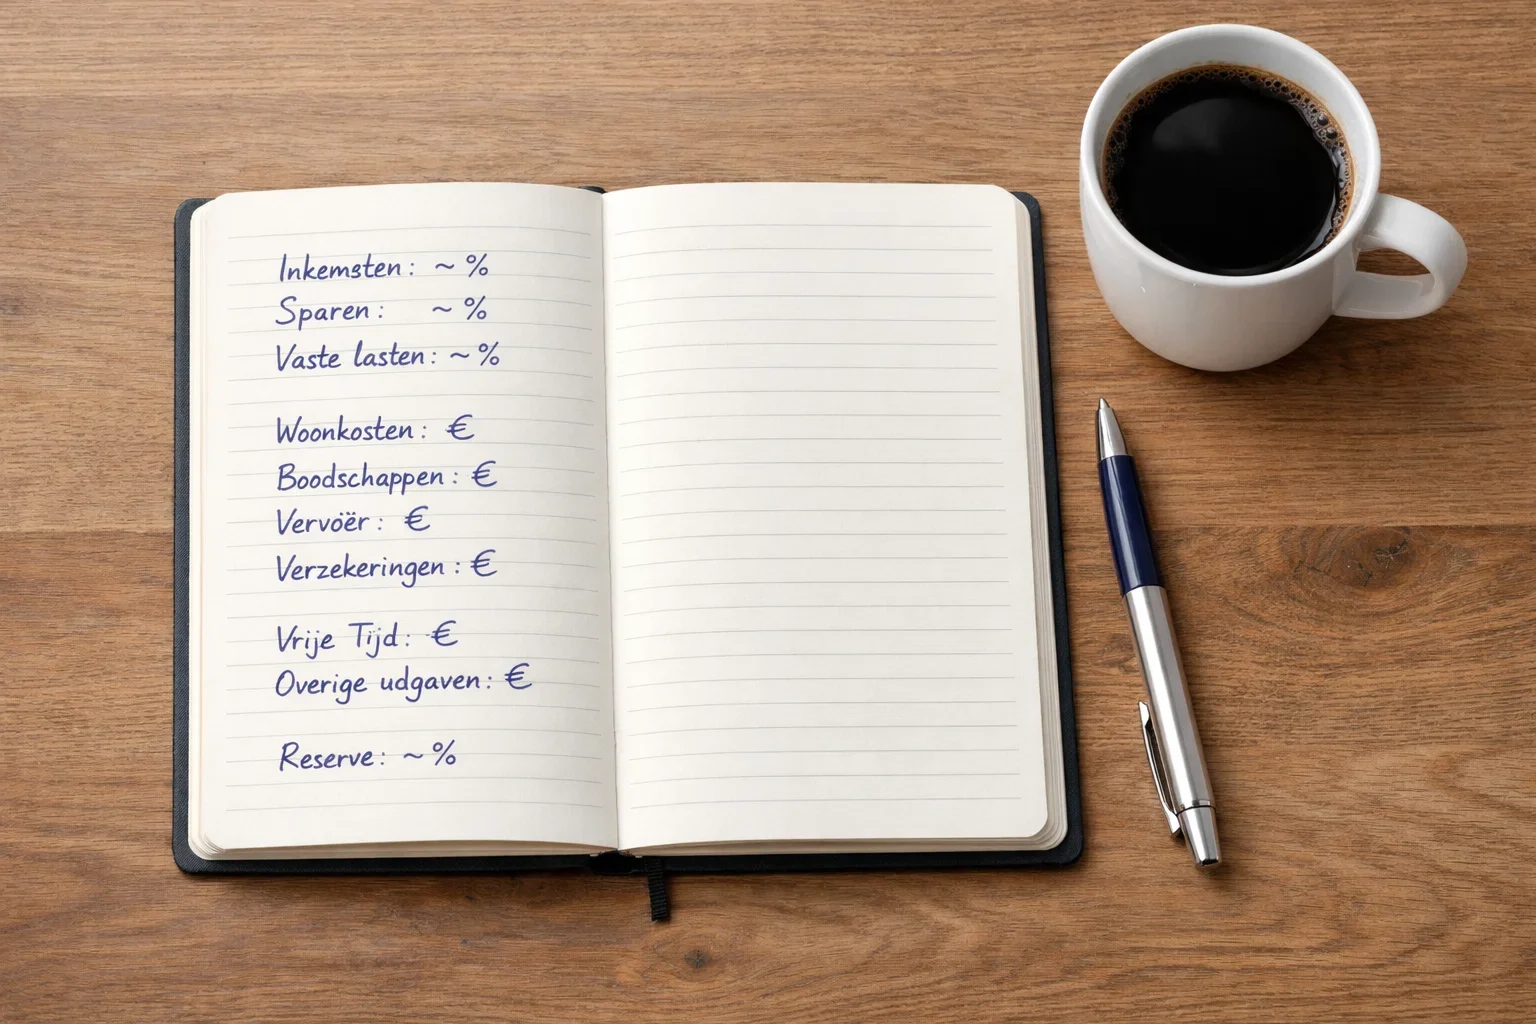 Inkemsten: ~ %
Sparen: ~ %
Vaste lasten: ~ %
Woonkosten: €
Boodschappen: €
Vervöër: €
Verzekeringen: €
Vrije Tijd: €
Overige udgaven: €
Reserve: ~ %